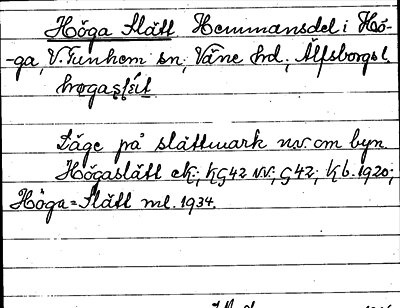 Höga Slätt Hemmansdel i Hö-
-ga, V. Tunhem sn, Väne hd, Älfsborgs l.
høgaslɛ́t
Läge på slättmark nv om byn.
Högaslätt ek; kG42 NV; G42; kb. 1920;
Höga=Slätt ml. 1934.